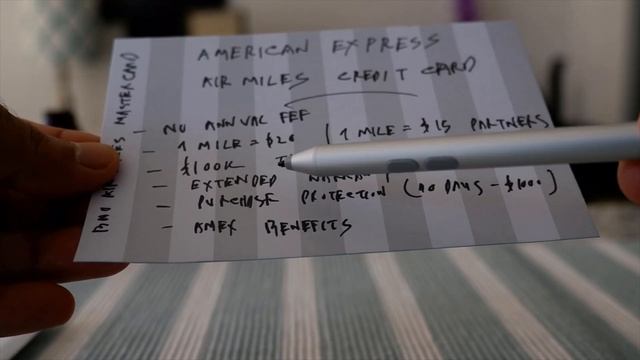 AMERICAN EXPRESS
AIR MILES CREDIT CARD
- NO ANNUAL FEE
- 1 MILE = $20 / 1 MILE = $15 PARTNERS
- $100K
- EXTENDED
- PURCHASE PROTECTION (90 DAYS - $1000)
- AMEX BENEFITS
BMO AIR MILES MASTERCARD